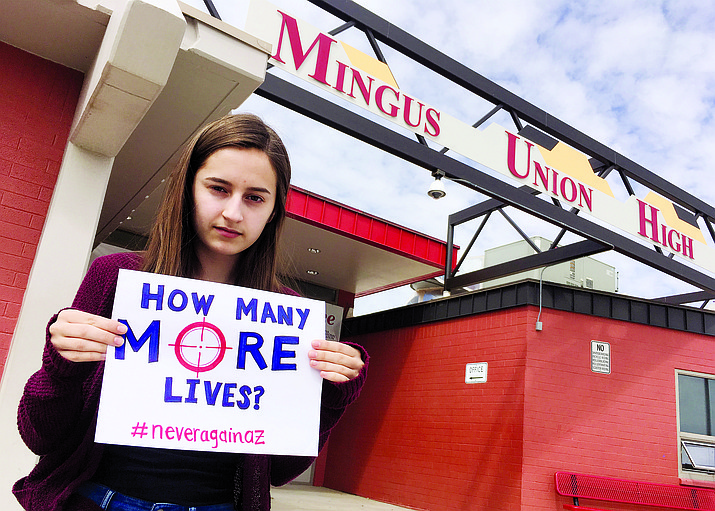 MINGUS UNION HIGH
HOW MANY
MORE
LIVES?
#neveragainaz
OFFICE
NO